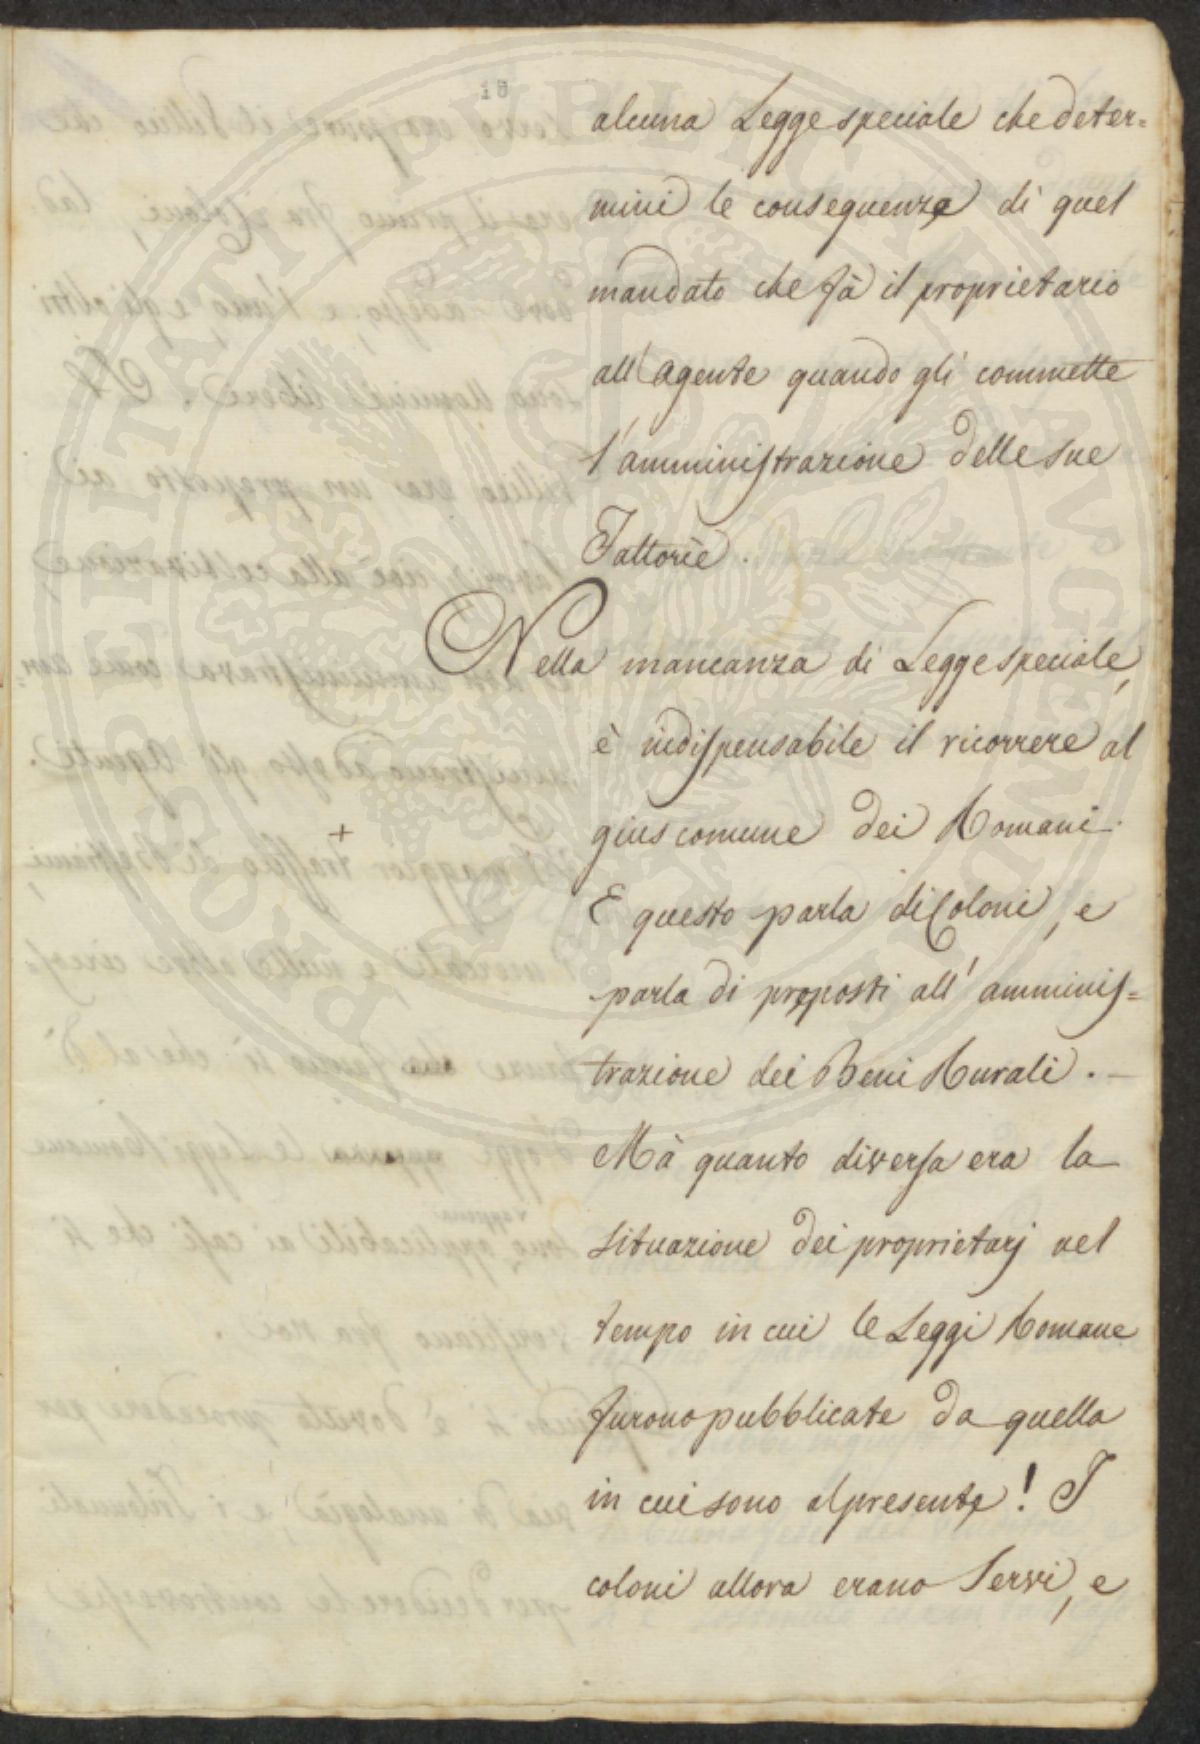 10
alcuna Legge speciale che deter=
mini le conseguenze di quel
mandato che fà il proprietario
all'agente quando gli commette
l'amministrazione delle sue
Fattorie.
Nella mancanza di Legge speciale,
è indispensabile il ricorrere al
gius comune dei Romani.
+
E questo parla di Coloni, e
parla di proposti all'amminis=
trazione dei Beni Rurali.
Mà quanto diversa era la
situazione dei proprietarj nel
tempo in cui le Leggi Romane
furono pubblicate da quella
in cui sono al presente! I
coloni allora erano Servi, e
PROSPERITATI PUBLICAE AUGENDAE